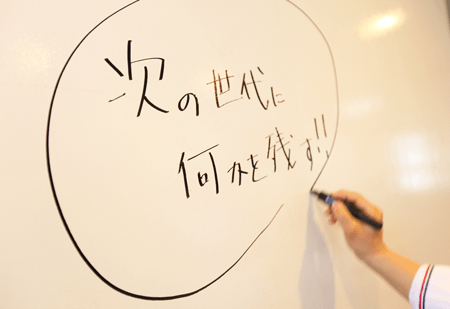 次の世代に
何かを残す!!